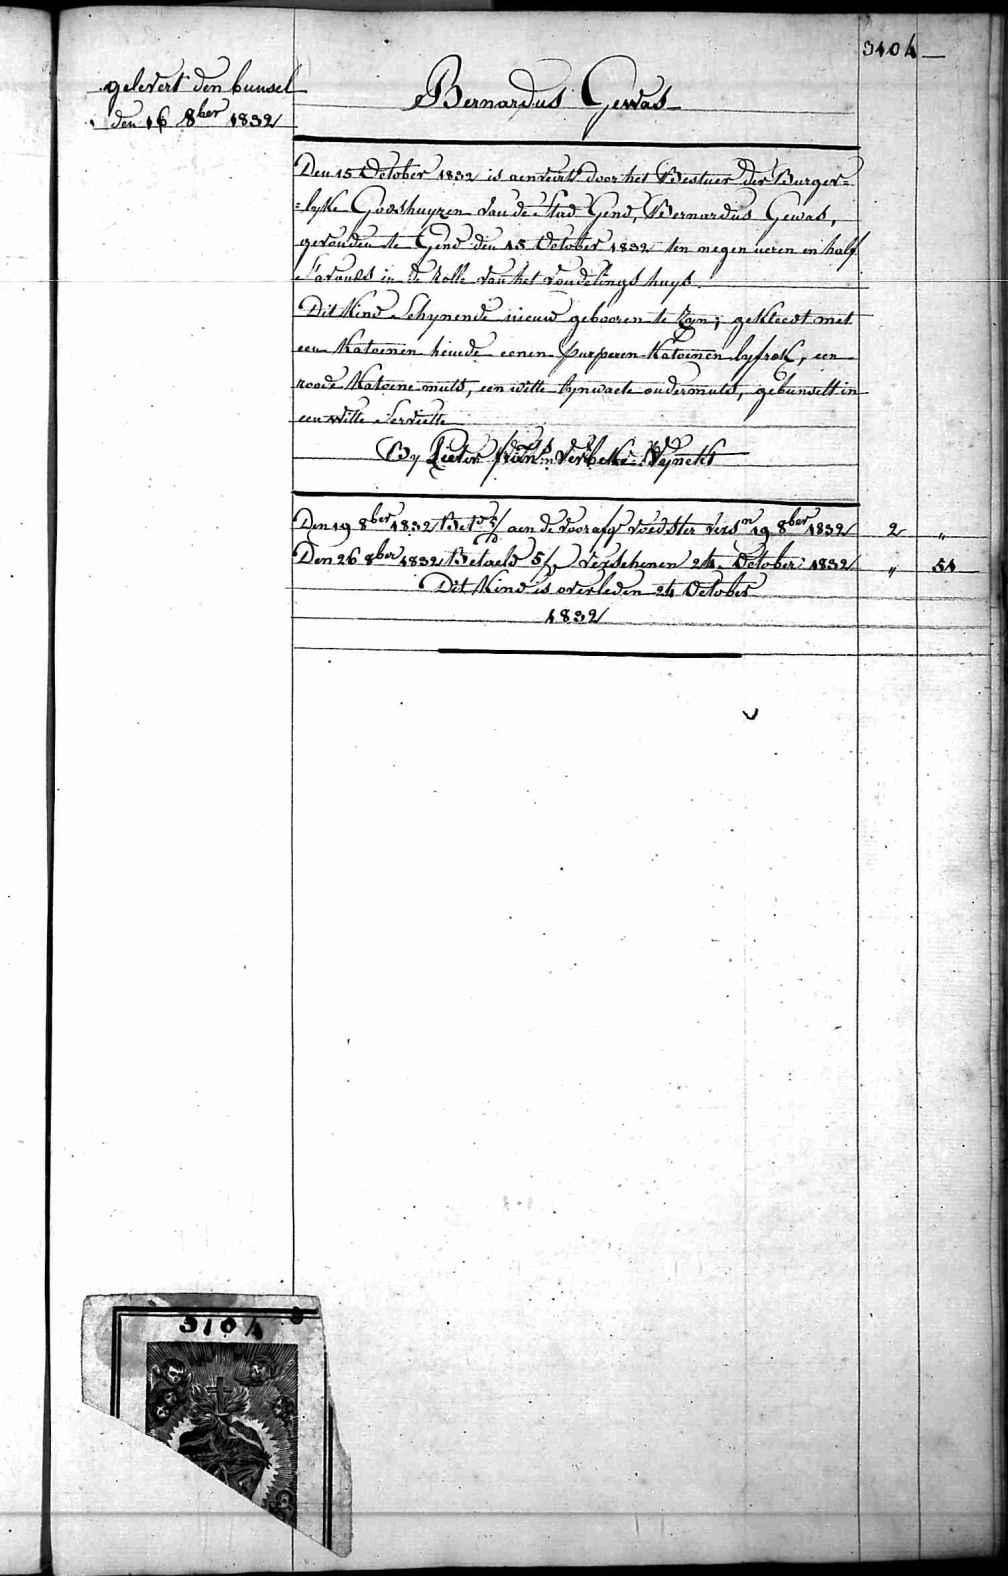 3104
gelevert den bunsel
den 16 8ber 1832
Bernardus Gewas
Den 15 October 1832 is aenveird door het Bestuer der Burger=
=lyke Godshuyzen van de Stad Gend, Bernardus Gewas,
gevonden te Gend den 15 October 1832 ten negen ueren en half
s'avonds in de Rolle van het vondelings huys.
Dit Kind Schynende nieuw gebooren te Zyn; gekleedt met
een Katoenen hemde eenen purperen Katoenen lyfrok, een
roode Katoene muts, een witte lynwaete ondermuts, gebunselt in
een witte Serviette
By Pieter Verbeke Wynckt
Den 19 8ber 1832 Bet aen de voorafg voedster vers 19 8ber 1832 2 "
Den 26 8ber 1832 Betaeld 5/ Verschenen 24 October 1832 " 51
Dit Kind is overleden 24 October
1832
3104